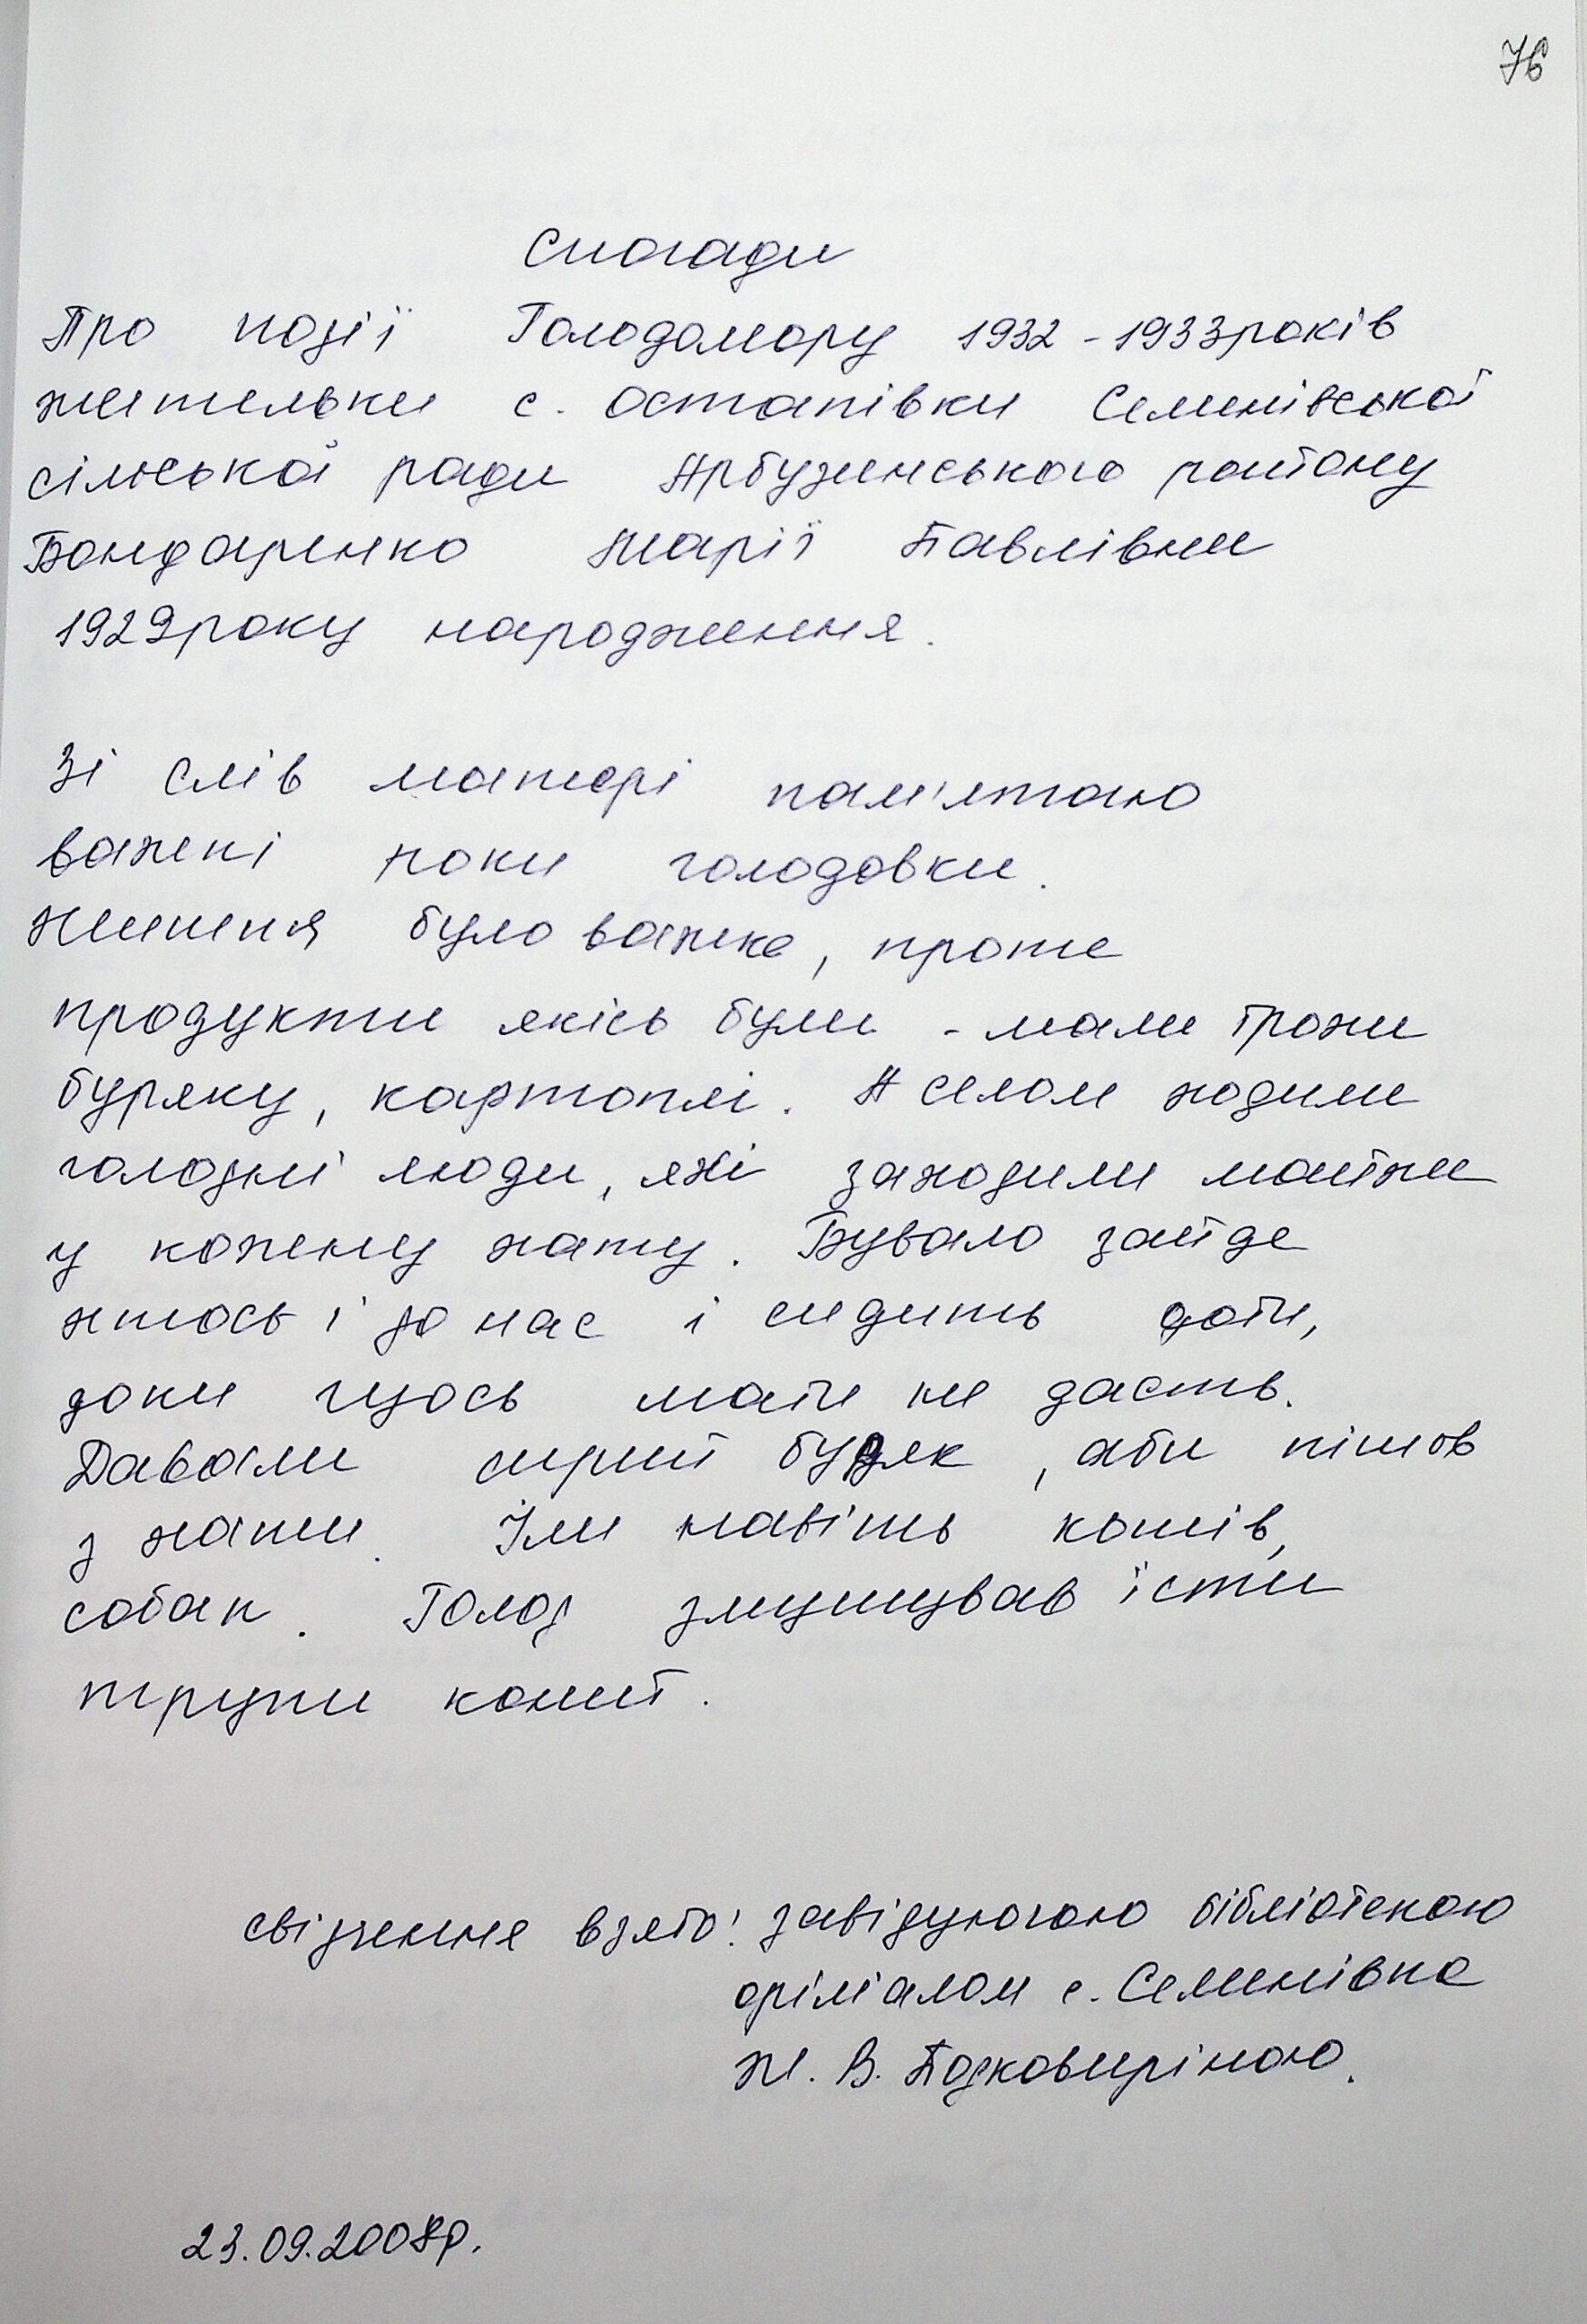 76
Спогади
Про події Голодомору 1932-1933років
жительки с. Остапівки Семенівської
сільської ради Арбузинського району
Бондаренко Марії Павлівни
1929року народження.
Зі слів матері пам'ятаю
важкі роки голодовки.
Життя було важке, проте
продукти якісь були - мали трохи
буряку, картоплі. А селом ходили
голодні люди, які заходили майже
у кожену хату. Бувало зайде
хтось і до нас і сидить доти,
доки щось мати не дасть.
Давали сирий буряк, аби пішов
з хати. Їли навіть котів,
собак. Голод змушував їсти
трупи коней.
свідчення взято: завідуючою бібліотекою
філіалом с. Семенівка
Н. В. Подковиріною.
23.09.2008р.